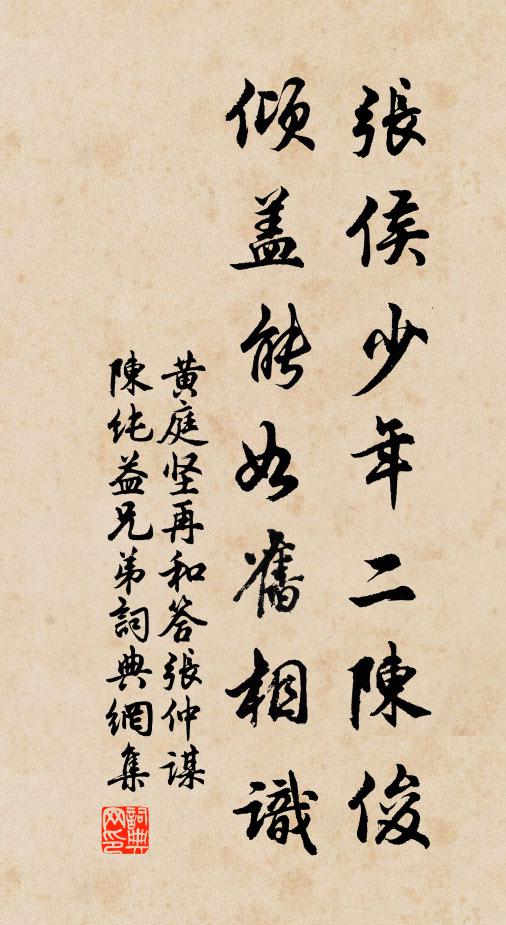 張侯少年二陳俊
傾盖能如舊相識
黄庭坚再和答張仲谋
陳純益兄弟詞典網集
詞典网印